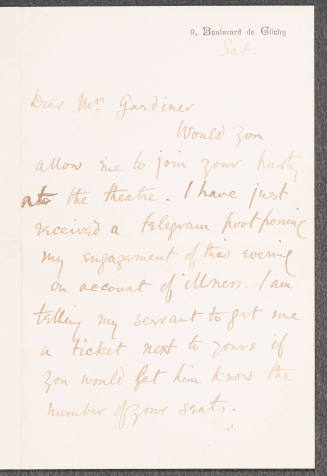 9, Boulevard de Clichy
Sat.
Dear Mrs Gardiner
Would you
allow me to join your party
at the theatre. I have just
received a telegram postponing
my engagement of this evening
on account of illness. I am
telling my servant to get me
a ticket next to yours if
you would let him know the
number of your seats.